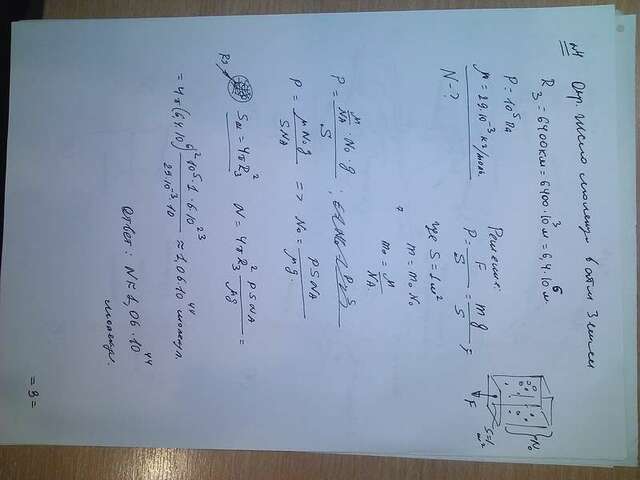 №4 Опр. число молекул в атм Земли
R₃ = 6400км = 6400·10³м = 6,4·10⁶м
P = 10⁵Па
μ = 29·10⁻³ кг/моль
N-?
Решение:
P = F/S = mg/S
где S = 1м²
m = m₀N₀
m₀ = μ/NA
N₀
S=1м²
F
P = (μ/NA · N₀ · g)/S ;
P = μN₀g/SNA => N₀ = PSNA/μg.
R₃
Sш = 4πR₃² N = 4πR₃² PSNA/μg =
= 4π(6,4·10⁶)² 10⁵·1·6·10²³/29·10⁻³·10 ≈ 1,06·10⁴⁴ молекул.
Ответ: N≈1,06·10⁴⁴
молекул.